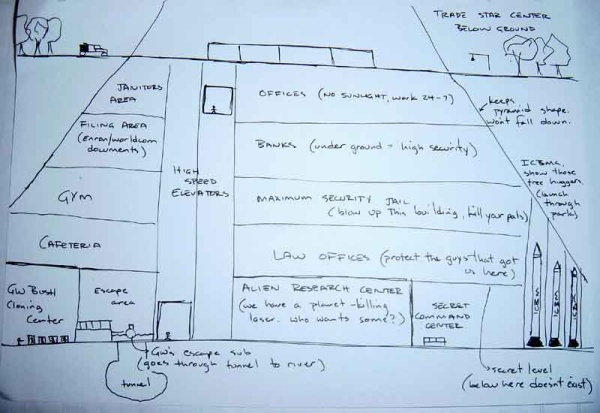 TRADE STAR CENTER
BELOW GROUND
JANITORS
AREA
OFFICES (NO SUNLIGHT, WORK 24-7)
keeps
pyramid shape.
wont fall down.
FILING AREA
(Enron/worldcom
documents)
BANKS (under ground = high security)
HIGH
SPEED
ELEVATORS
ICBMs,
show those
tree huggers
(launch
through
park)
GYM
MAXIMUM SECURITY JAIL
(blow up this building, kill your pals)
CAFETERIA
LAW OFFICES (protect the guys that got
us here)
GW BUSH
Cloning
Center
Escape
area
ALIEN RESEARCH CENTER
(we have a planet-killing
laser. who wants some?)
SECRET
COMMAND
CENTER
GW's escape sub
(goes through tunnel to river)
tunnel
secret level
(below here doesnt exist)